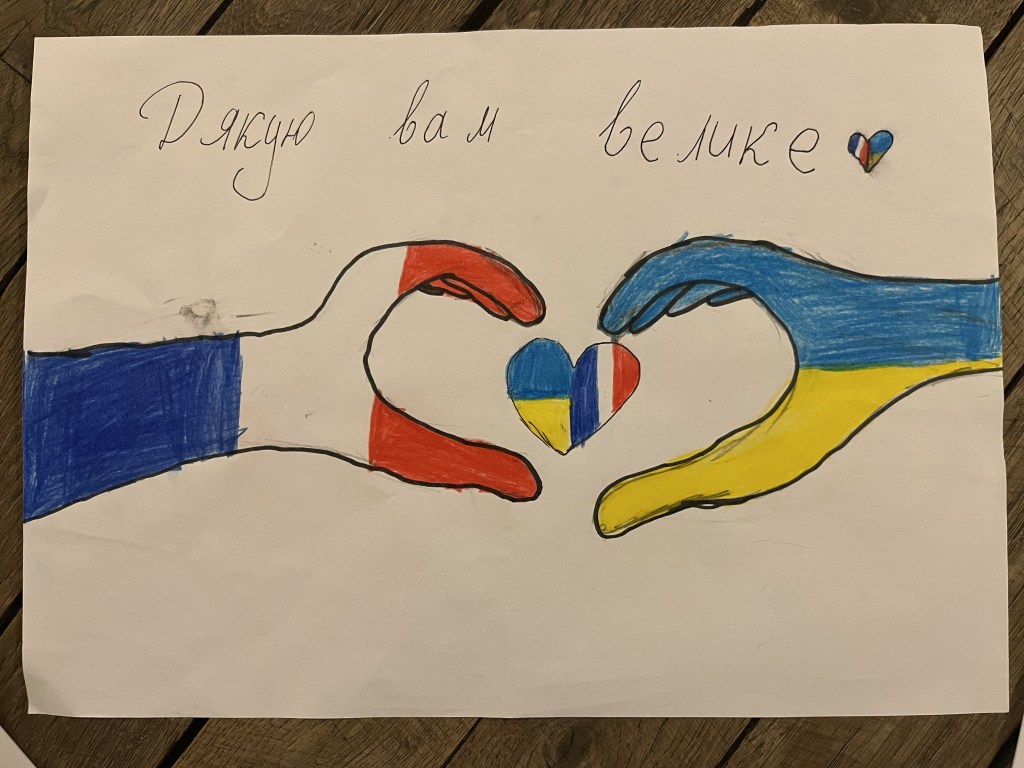 Дякую вам велике